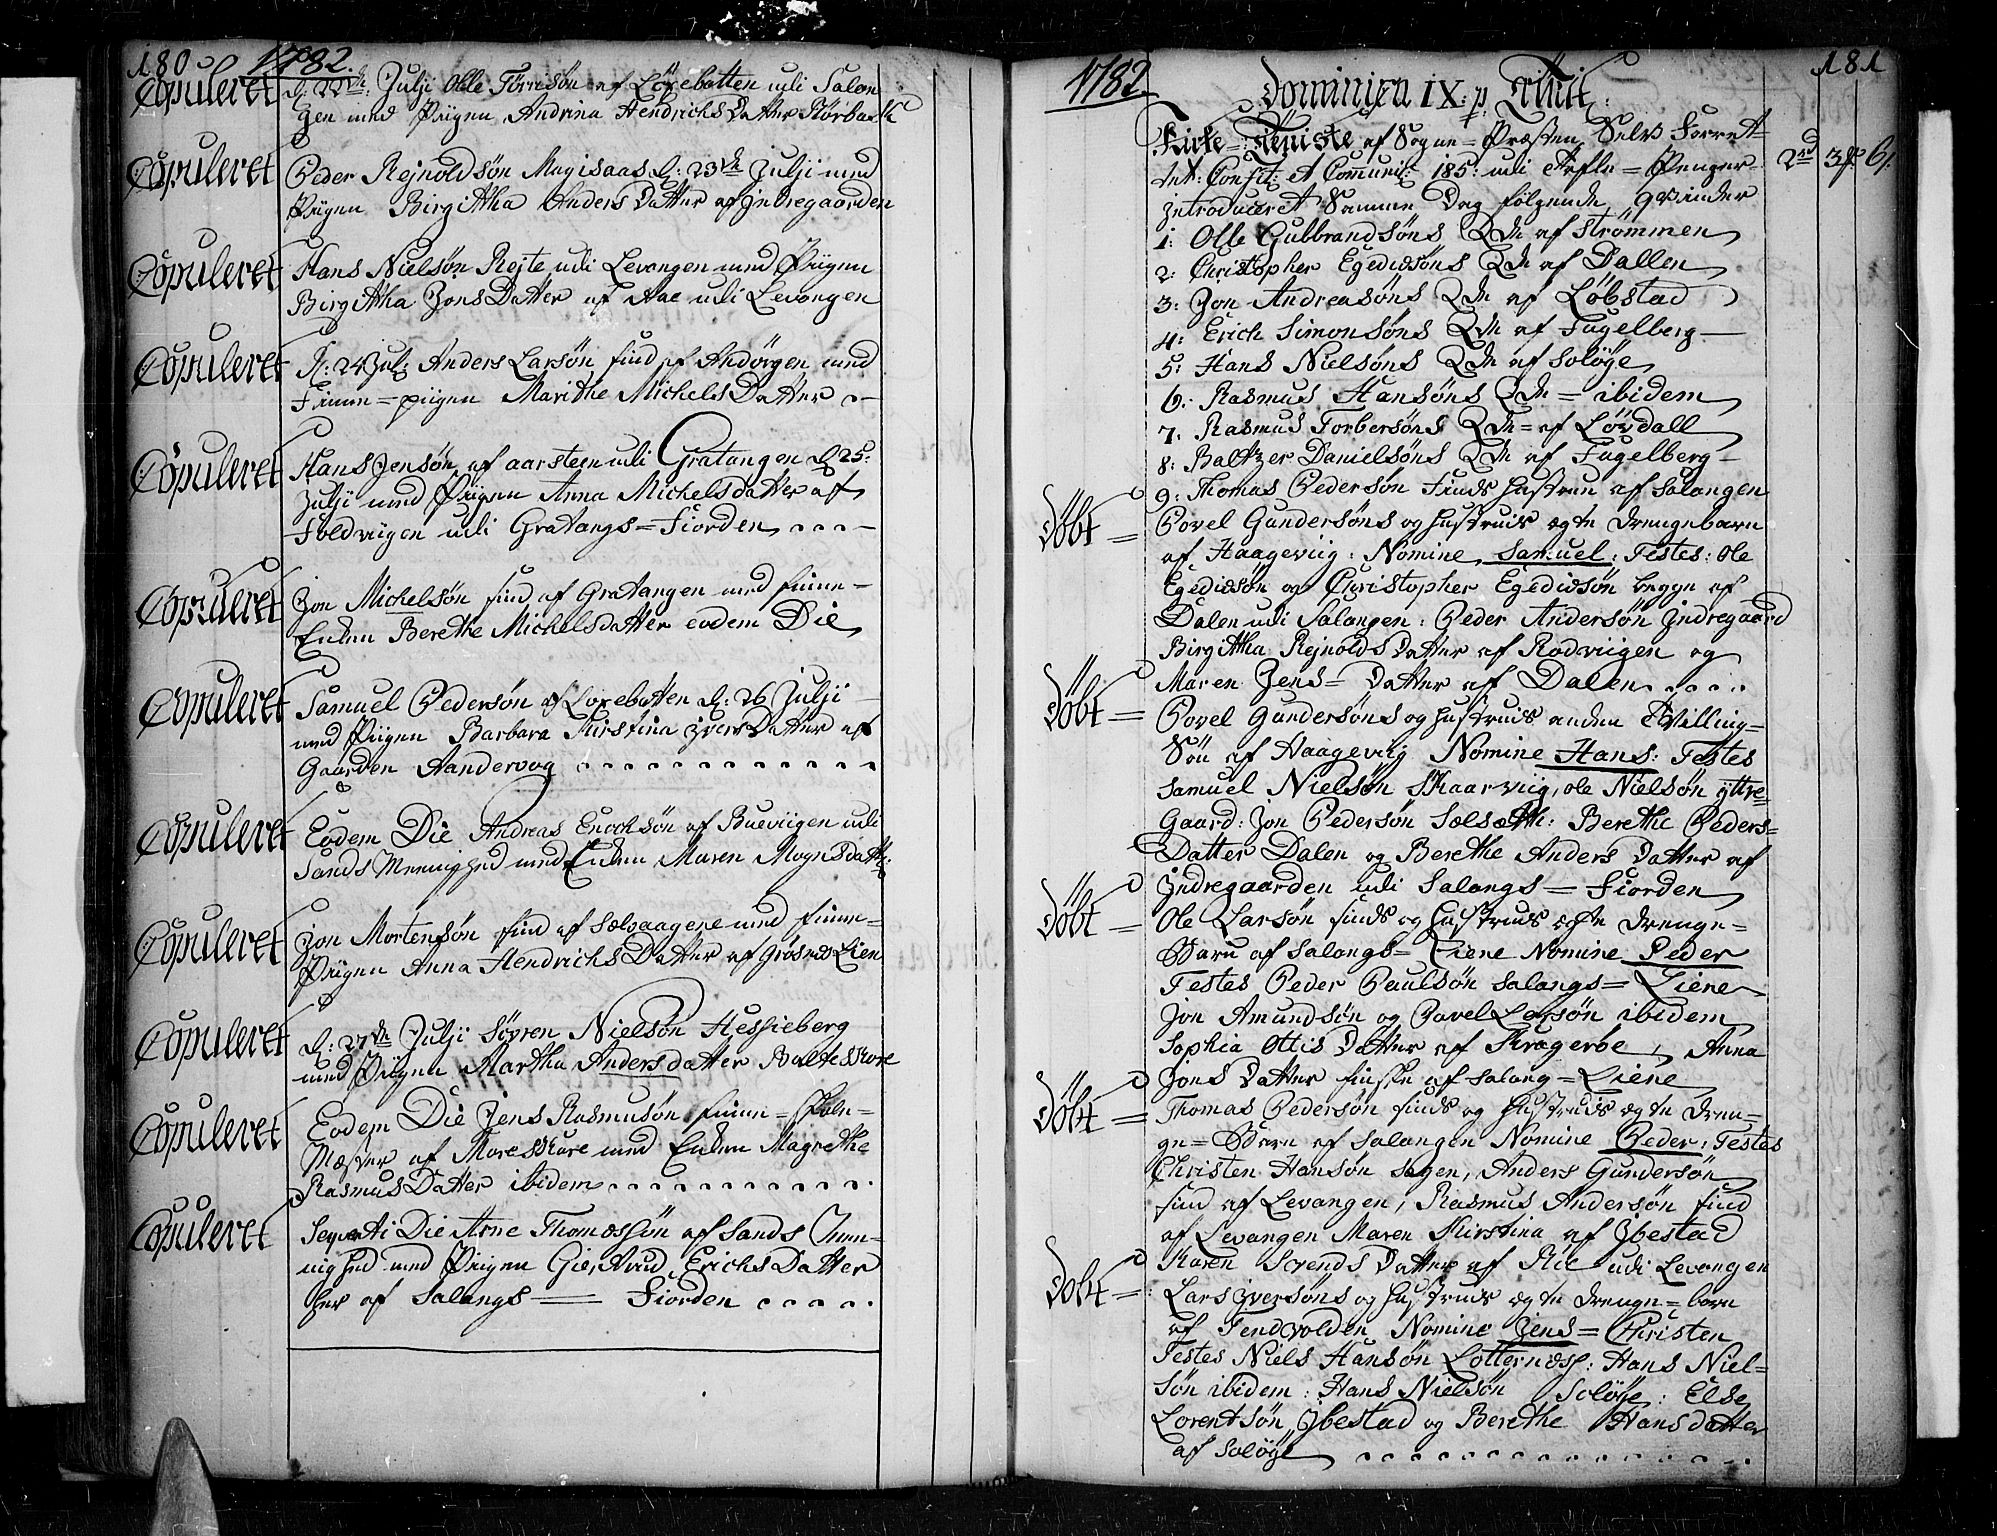 180
1782.
Copuleret
d: 22de Julji Olle Torresøn af Løxebotten udi Salan
gen med Piigen Andrina Hendrichs Datter Rørbach
Copuleret
Peder Rejnoldsøn Magisaas d: 23de Julji med
Piigen Birgittha Anders Datter af Indregaarden
Copuleret
Hans Nielsøn Rejte udi Levangen med Piigen
Birgittha Jons Datter af Aae udi Levangen
Copuleret
d: 24 Jul: Anders Larsøn find af Andørgen med
Finne=piigen Marithe Michels Datter
Copuleret
Hans Jensøn af aarsteen udi Gratangen d: 25:
Julji med Piigen Anna Michelsdatter af
Foldviigen udi Gratangs=Fiorden
Copuleret
Jon Michelsøn find af Gratangen med finne=
Enken Berethe Michelsdatter eodem Die
Copuleret
Samuel Pedersøn af Loxebotten d: 26 Julji
med Piigen Barbara Kirstina Ivers Datter af
Gaarden Aandervog
Copuleret
Eodem Die Andreas Enochsøn af Bueviigen udi
Sands Mennighed med Enken Maren Mognsdatt:
Copuleret
Jon Mortensøn find af Sælsaagene med finne=
Piigen Anna Hendrichs Datter af Grøsnes Lien
Copuleret
d: 27de Julji Søvren Nielsøn Hessieberg
med Piigen Martha Andersdatter Baltesskore
Copuleret
Eodem Die Jens Rasmusøn finne=Skole=
Mæster af Moresskore med Enken Magrethe
Rasmus Datter ibidem
Copuleret
Seqventi Die Arne Thomossøn af Sands Men=
nighed med Piigen Giertrud Erichs Datter
her af Salangs= Fiorden
1782
181
Dominica IX: p: Trinit:
Kirke=Tieniste af Sogne=Præsten Selv Forret=
tet: Confit: et Comuni: 185: udi Tafle=Penger 2rd 3 6
Introduceret Samme Dag følgende qvinder
1: Olle Gulbrandsøns Qde af Strømmen
2: Christopher Egedissøns Qde af Dallen
3: Jon Andreasøns Qde af Løbstad
4: Erich Simonsøns Qde af Fugelberg
5: Hans Nielsøns Qde af Soløye
6: Rasmus Hansøns Qde = ibidem
7: Rasmus Torbersøns Qde = af Løvdall
8: Baltzer Danielsøns Qde af Fugelberg
9: Thomas Pedersøn Finds hustrue af Salangen
Døbt =
Povel Gundersøns og hustrues ægte drengebarn
af Haageviig: Nomine Samuel: Testes: Ole
Egedissøn og Christopher Egedissøn begge af
Dalen udi Salangen: Peder Andersøn Indregaard
Birgittha Rejnolds Datter af Rodviigen og
Maren Jens=Datter af Dalen
Døbt =
Povel Gundersøns og hustrues anden Tvilling=
Søn af Haageviig Nomine Hans: Testes
Samuel Nielsøn Skaarviig, ole Nielsøn yttre=
Gaard: Jon Pedersøn Sælsæth: Berethe Peders=
Datter Dalen og Berethe Anders Datter af
Indregaarden udi Salangs=Fiorden
Døbt =
Ole Larsøn finds og hustrues ægte drenge=
Barn af Salangs=Liene Nomine Peder
Testes Peder Paulsøn Salangs=Liene
Jon Amundsøn og Povel Larsøn ibidem
Sophia Ottis Datter af Kragerøe, Anna
Jons Datter finsse af Salang=Liene
Døbt =
Thomas Pedersøn finds og hustrues ægte dren=
ge=Barn af Salangen Nomine Peder: Testes
Christen Hansøn Sagen, Anders Gundersøn
find af Levangen, Rasmus Andersøn find
af Levangen Maren Kirstina af Ibestad
Karen Sørends Datter af Rie udi Levangen
Døbt =
Lars Iversøns og hustrues ægte drenge=barn
af Tendvolden Nomine Jens=Christen
Testes Niels Hansøn Lotternæss: Hans Niel=
søn ibidem: Hans Nielsøn Soløye: Else
Lorentsøn Ibestad og Berethe Hansdatter
af Soløye